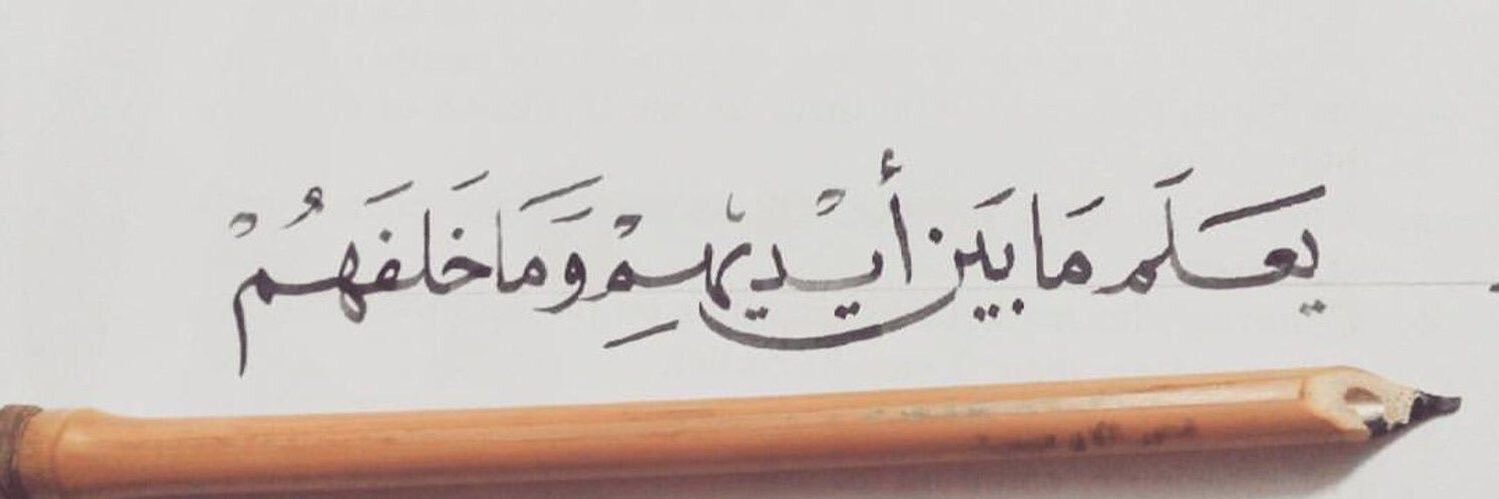 يَعْلَم مَا بَيَن أَيْدِيْهِمْ وَمَا خَلَفَهُمْ